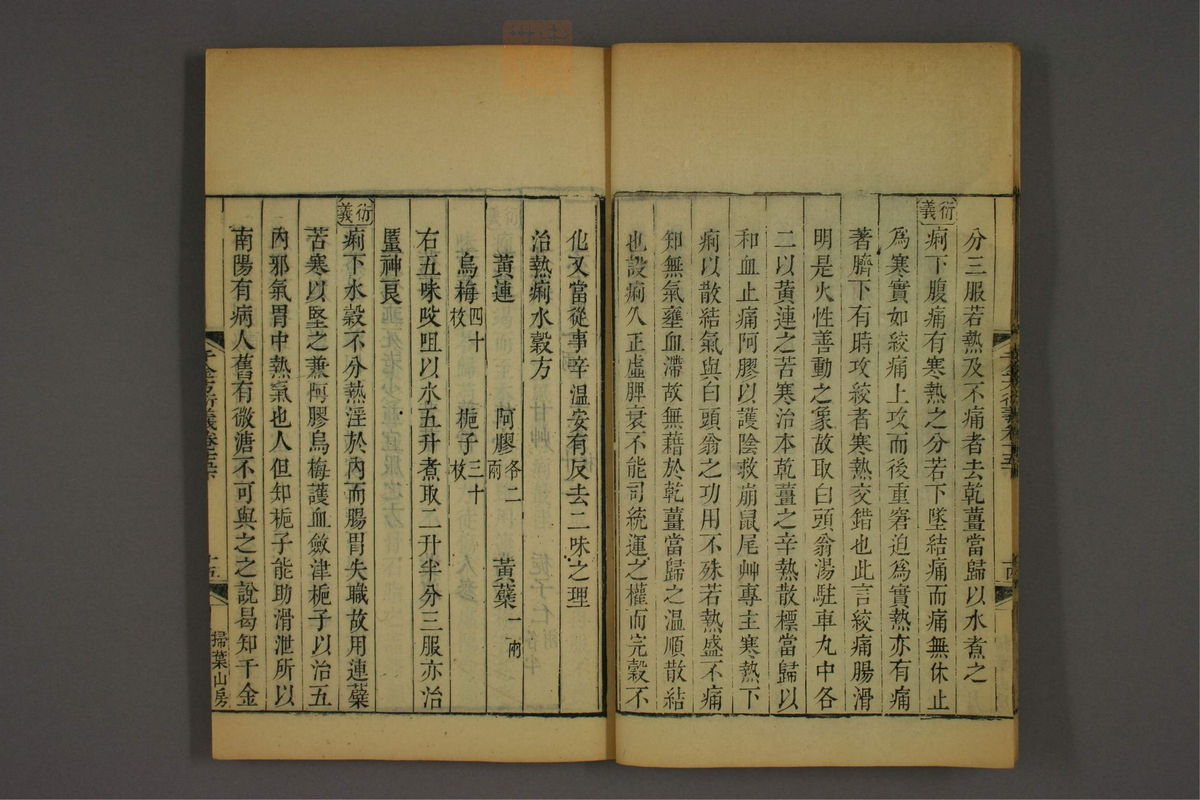 分三服若熱及不痛者去乾薑當歸以水煮之
衍義
痢下腹痛有寒熱之分若下墜結痛而痛無休止
為寒實如絞痛上攻而後重窘迫為實熱亦有痛
著臍下有時攻絞者寒熱交錯也此言絞痛腸滑
明是火性善動之象故取白頭翁湯駐車丸中各
二以黃連之苦寒治本乾薑之辛熱散標當歸以
和血止痛阿膠以護陰救崩鼠尾艸專主寒熱下
痢以散結氣與白頭翁之功用不殊若熱盛不痛
知無氣壅血滯故無藉於乾薑當歸之溫順散結
也設痢久正虛脾衰不能司統運之權而完穀不
化又當從事辛溫安有反去二味之理
治熱痢水穀方
黃連 阿膠各二兩 黃蘗一兩
烏梅四十枚 梔子三十枚
右五味㕮咀以水五升煮取二升半分三服亦治
䘌神良
衍義
痢下水穀不分熱淫於內而腸胃失職故用連蘗
苦寒以堅之兼阿膠烏梅護血斂津梔子以治五
內邪氣胃中熱氣也人但知梔子能助滑泄所以
南陽有病人舊有微溏不可與之之說曷知千金
千金方衍義卷十五
掃葉山房